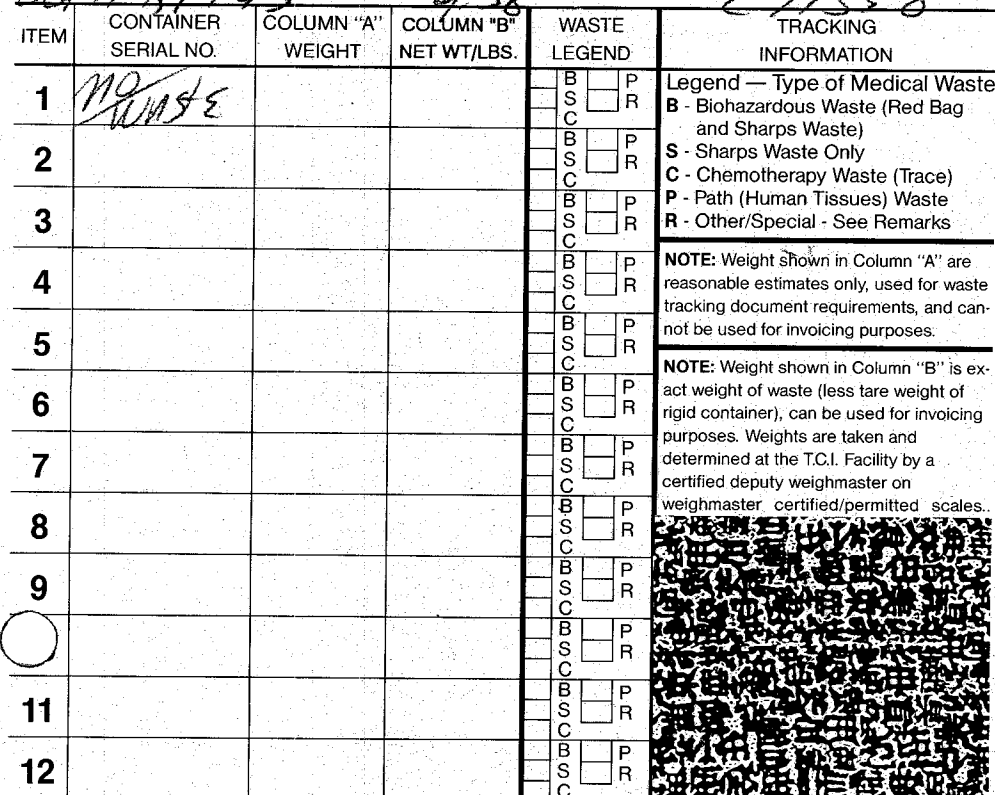 ITEM CONTAINER SERIAL NO. COLUMN "A" WEIGHT COLUMN "B" NET WT/LBS. WASTE LEGEND TRACKING INFORMATION
1 NO WASTE B S C P R
2 B S C P R
3 B S C P R
4 B S C P R
5 B S C P R
6 B S C P R
7 B S C P R
8 B S C P R
9 B S C P R
B S C P R
11 B S C P R
12 B S C P R
Legend — Type of Medical Waste
B - Biohazardous Waste (Red Bag
and Sharps Waste)
S - Sharps Waste Only
C - Chemotherapy Waste (Trace)
P - Path (Human Tissues) Waste
R - Other/Special - See Remarks
NOTE: Weight shown in Column "A" are
reasonable estimates only, used for waste
tracking document requirements, and can-
not be used for invoicing purposes.
NOTE: Weight shown in Column "B" is ex-
act weight of waste (less tare weight of
rigid container), can be used for invoicing
purposes. Weights are taken and
determined at the T.C.I. Facility by a
certified deputy weighmaster on
weighmaster certified/permitted scales..